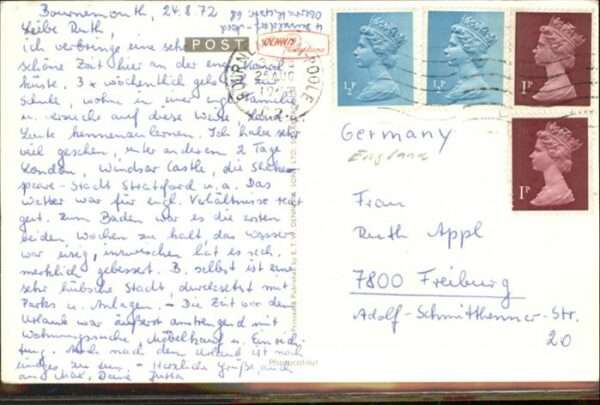 Bournemouth, 24.8.72
Liebe Ruth,
ich verbringe eine sehr
schöne Zeit hier an der engl. Kanal-
küste. 3 x wöchentlich gehe ich
Schule, wohne in einer engl. Familie
u. versuche auf diese Weise, Land u.
Leute kennenzulernen. Ich habe sehr
viel gesehen, unter anderem 2 Tage
London, Windsor Castle, die Shakes-
peare-Stadt Stratford u.a. Das
Wetter war für engl. Verhältnisse
gut. Zum Baden war es die ersten
beiden Wochen zu kalt das Wasser
war eisig, inzwischen hat es sich
merklich gebessert. B. selbst ist eine
sehr hübsche Stadt, durchsetzt mit
Parks u. Anlagen. - Die Zeit vor dem
Urlaub war äußerst anstrengend mit
Wohnungssuche, Möbelkauf u. Einrich-
tung. Auch nach dem Urlaub ist noch
einiges zu tun. - Herzliche Grüße, auch
an Max, Deine Jutta
POST
BOURNEMOUTH POOLE
24 AUG
1972
Photocolour
½P
½P
1P
1P
Germany
England
Frau
Ruth Appl
7800 Freiburg
Adolf-Schmitthenner-Str.
20